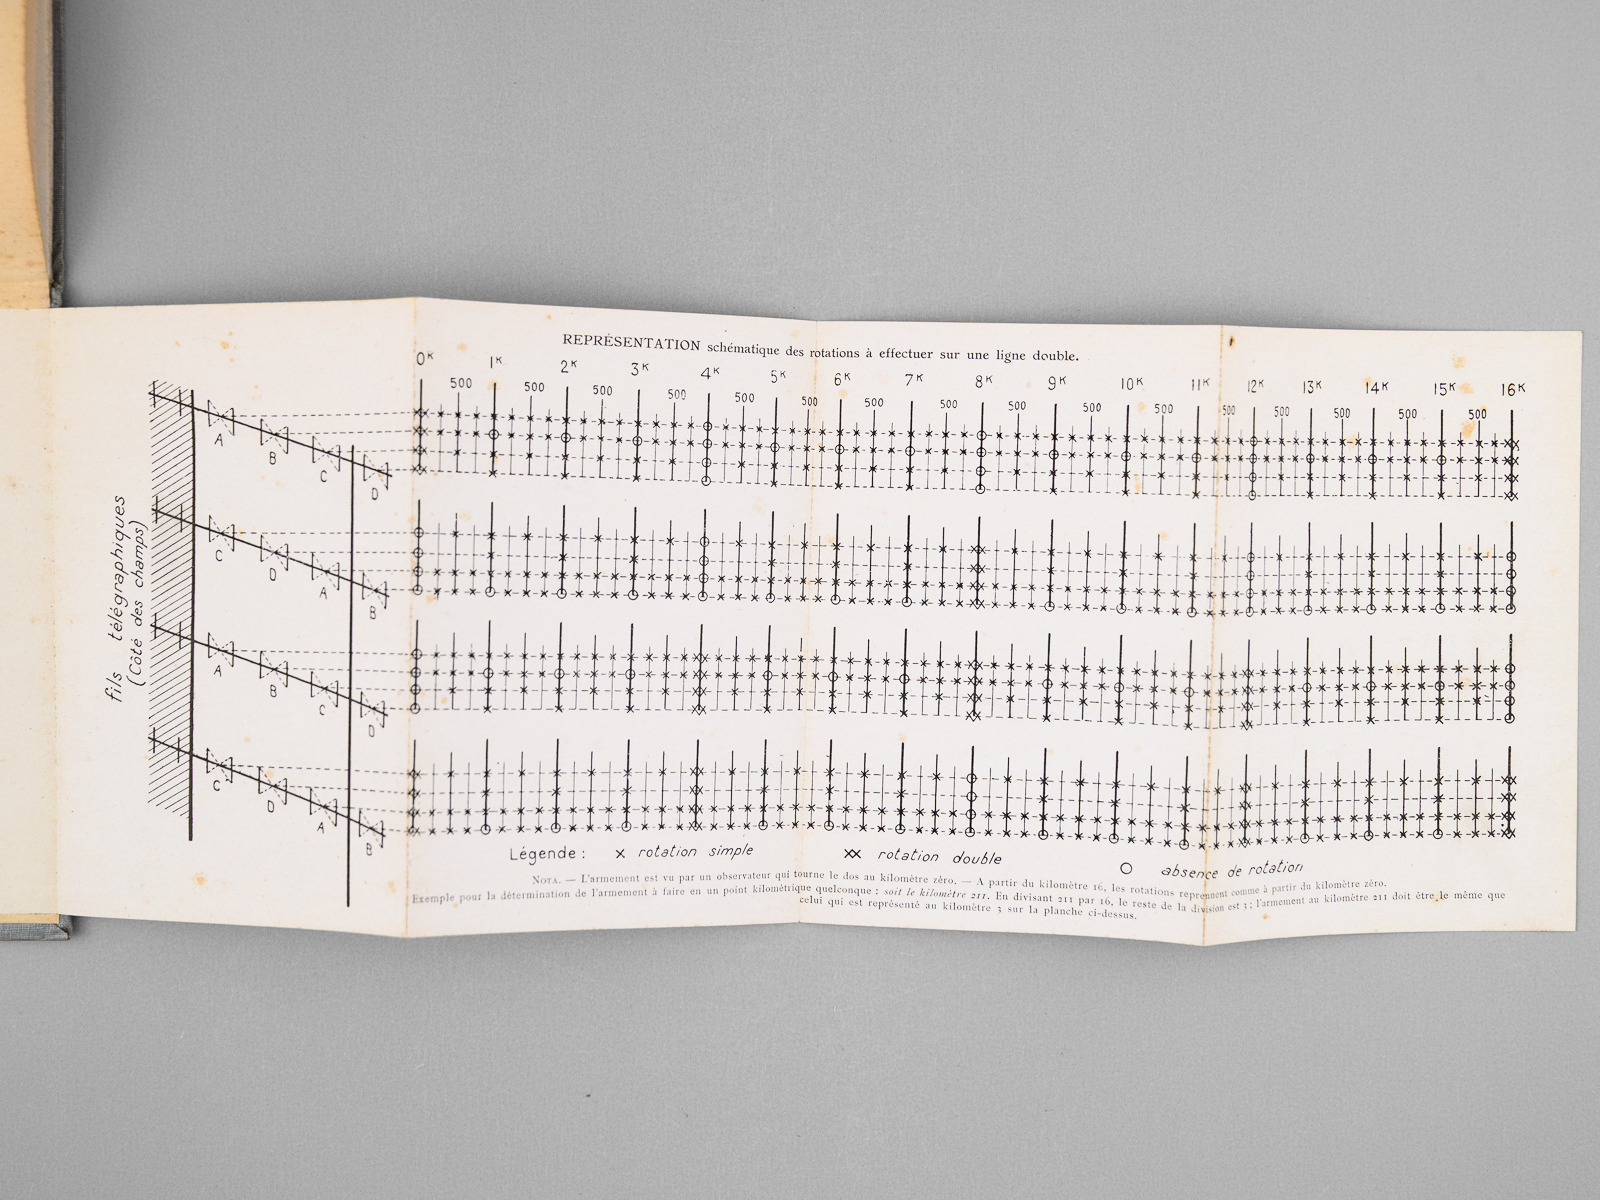 REPRÉSENTATION schématique des rotations à effectuer sur une ligne double.
0K 1K 2K 3K 4K 5K 6K 7K 8K 9K 10K 11K 12K 13K 14K 15K 16K
500 500 500 500 500 500 500 500 500 500 500 500 500 500 500 500
A B C D
fils télégraphiques
(Côté des champs)
C D A B
A B C D
C D A B
Légende : x rotation simple xx rotation double O absence de rotation
NOTA. — L'armement est vu par un observateur qui tourne le dos au kilomètre zéro. — A partir du kilomètre 16, les rotations reprennent comme à partir du kilomètre zéro.
Exemple pour la détermination de l'armement à faire en un point kilométrique quelconque : soit le kilomètre 211. En divisant 211 par 16, le reste de la division est 3 ; l'armement au kilomètre 211 doit être le même que
celui qui est représenté au kilomètre 3 sur la planche ci-dessus.